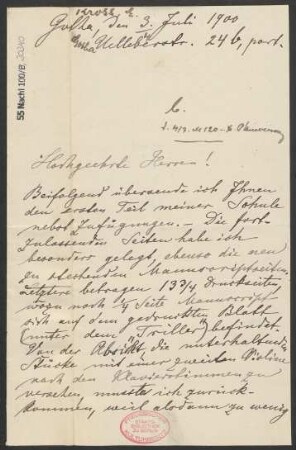 Gotha, den 3. Juli 1900
Uelleberstr. 24 b, part.
55 Nachl 100/B
Hochgeehrte Herren!
Beifolgend übersende ich Ihnen
den ersten Teil meiner Schule
nebst Zufügungen. – Die fort-
zulassenden Seiten habe ich
besonders gelegt, ebenso die neu
zu stechenden Manuscriptseiten,
letztere betragen 13 3/4 Druckseiten,
wozu noch 1/4 Seite Manuscript
sich auf dem gedruckten Blatt
(unter dem "Triller") befindet.
Von der Absicht die unterhaltenden
Stücke mit einer zweiten Violine
nach den Klavierstimmen zu
versehen, musste ich zurück-
kommen, weil alsdann zu wenig